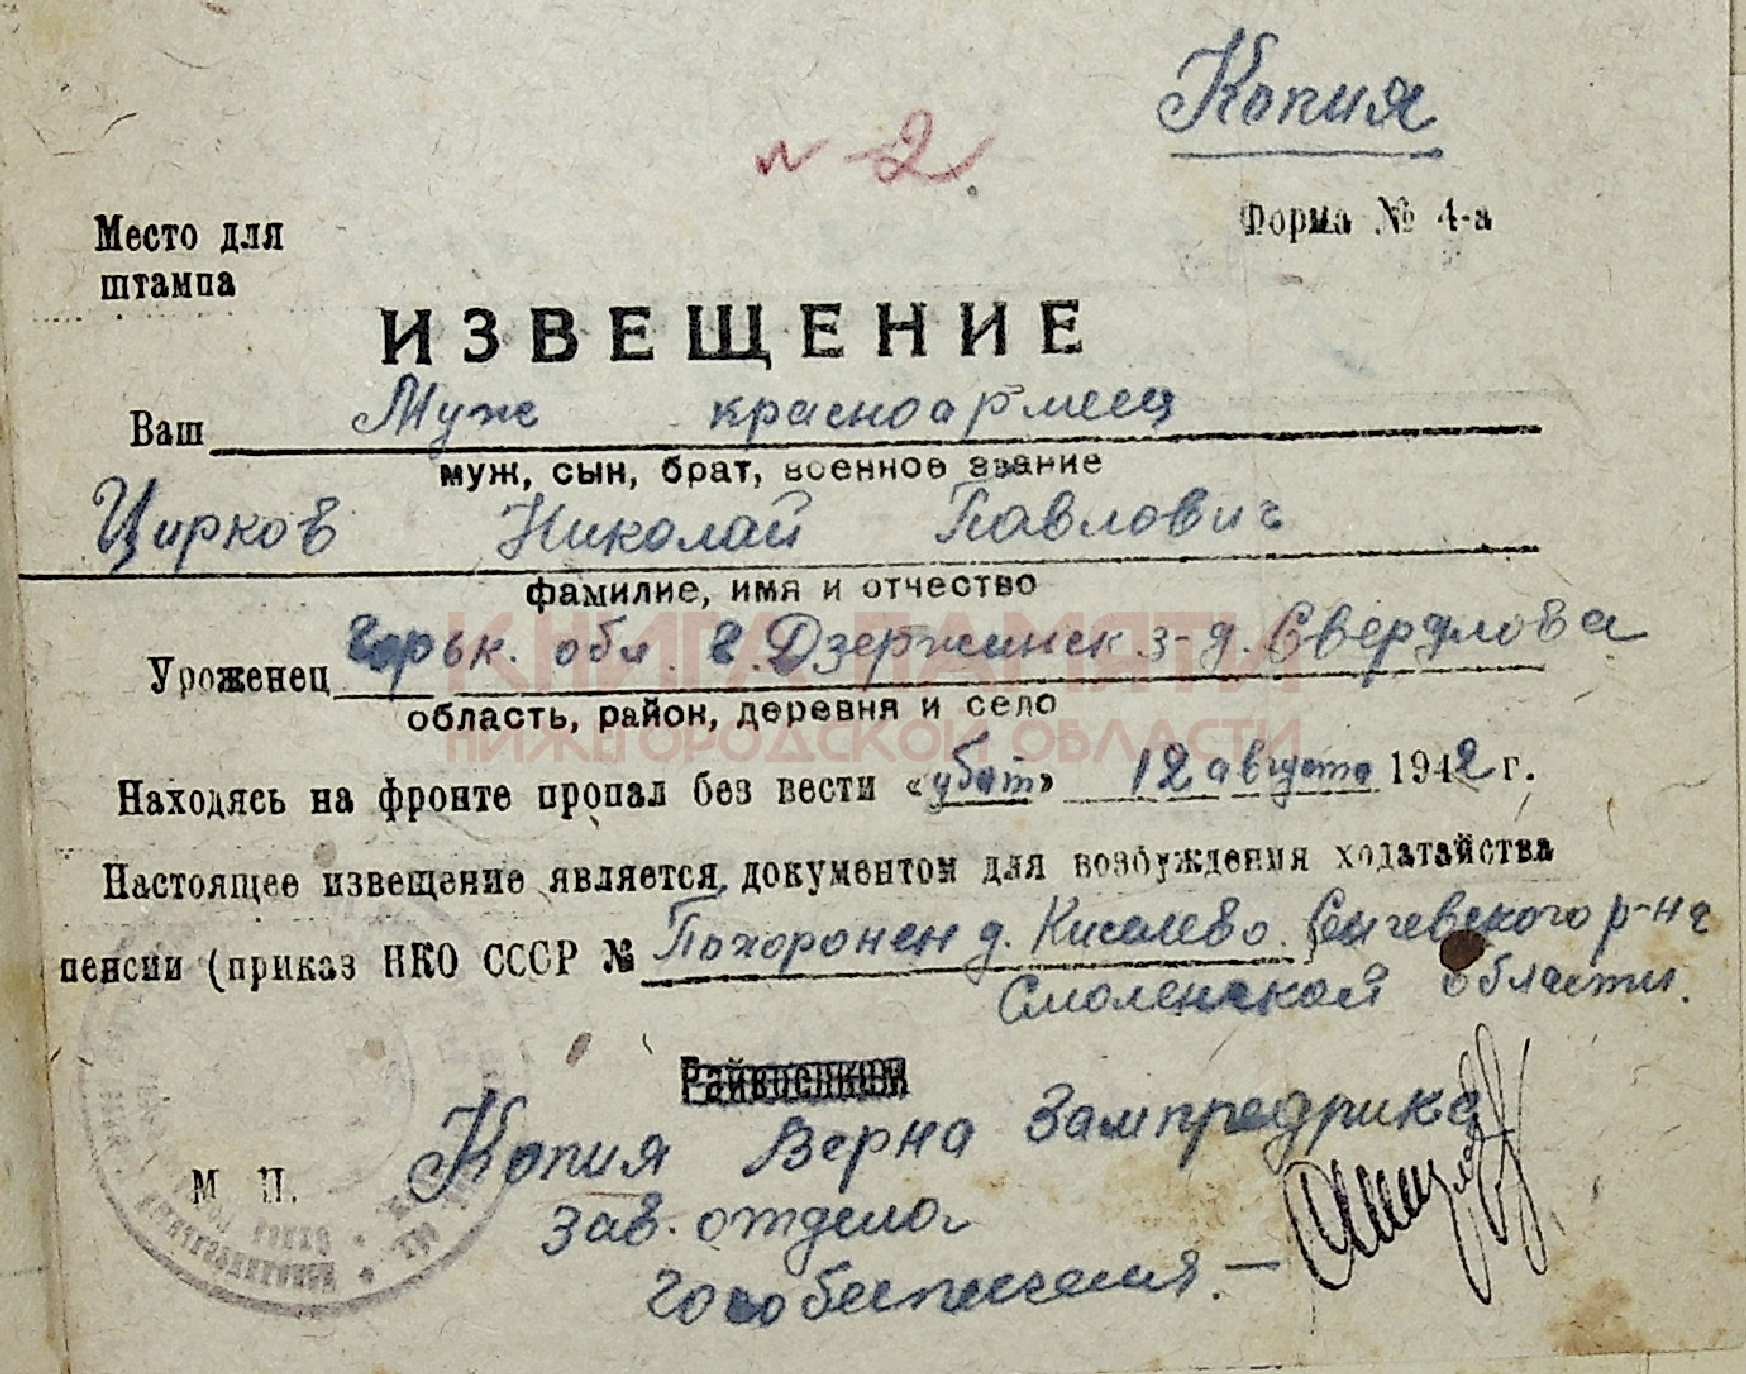 Копия
№ 2.
Форма № 4-а
Место для
штампа
ИЗВЕЩЕНИЕ
Ваш Муж красноармеец
муж, сын, брат, военное звание
Цирков Николай Павлович
фамилие, имя и отчество
Уроженец Горьк. обл. г. Дзержинск з-д. Свердлова
область, район, деревня и село
КНИГА ПАМЯТИ
НИЖЕГОРОДСКОЙ ОБЛАСТИ
Находясь на фронте пропал без вести «убит» 12 августа 1942 г.
Настоящее извещение является документом для возбуждения ходатайства
пенсии (приказ НКО СССР № Похоронен д. Киселево. р-на
Смоленской области.
Райвоенком
Копия Верна Зампредрика
М. П.
зав. отдела
гособеспечения. —